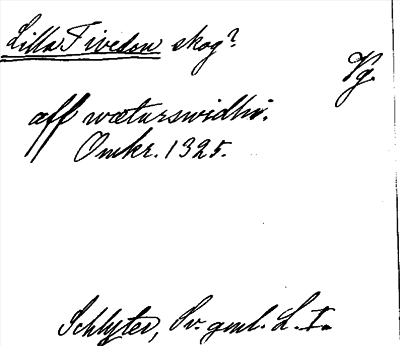 Lilla Tivedon skog?
Vg.
aff wæturswidhi.
Omkr. 1325.
Schlyter, Sv. gml. L. I.